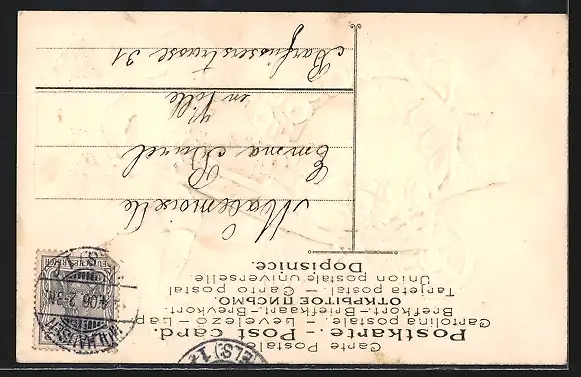 Carte Postale
Postkarte. Post card.
Cartolina postale. – Levelező-Lap
Briefkort – Brefkaart. – Brevkort
ОТКРЫТОЕ ПИСЬМО.
Tarjeta postal – Carto postal
Union postale universelle.
Dopisnice.
DEUTSCHES REICH
4.06 2-3N
Mademoiselle
Emma
en ville
Barfüsserstrasse 31